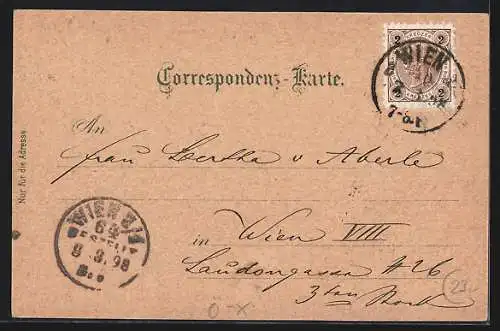 2 KREUZER 2
WIEN
7-8.V
Correspondenz-Karte.
An
Frau Bertha v Aberle
in Wien VIII
Laudongasse # 26
3ten Stock
Nur für die Adresse
WIEN 8/1
64
BESTELLT
8.3.98
Ö-X
23